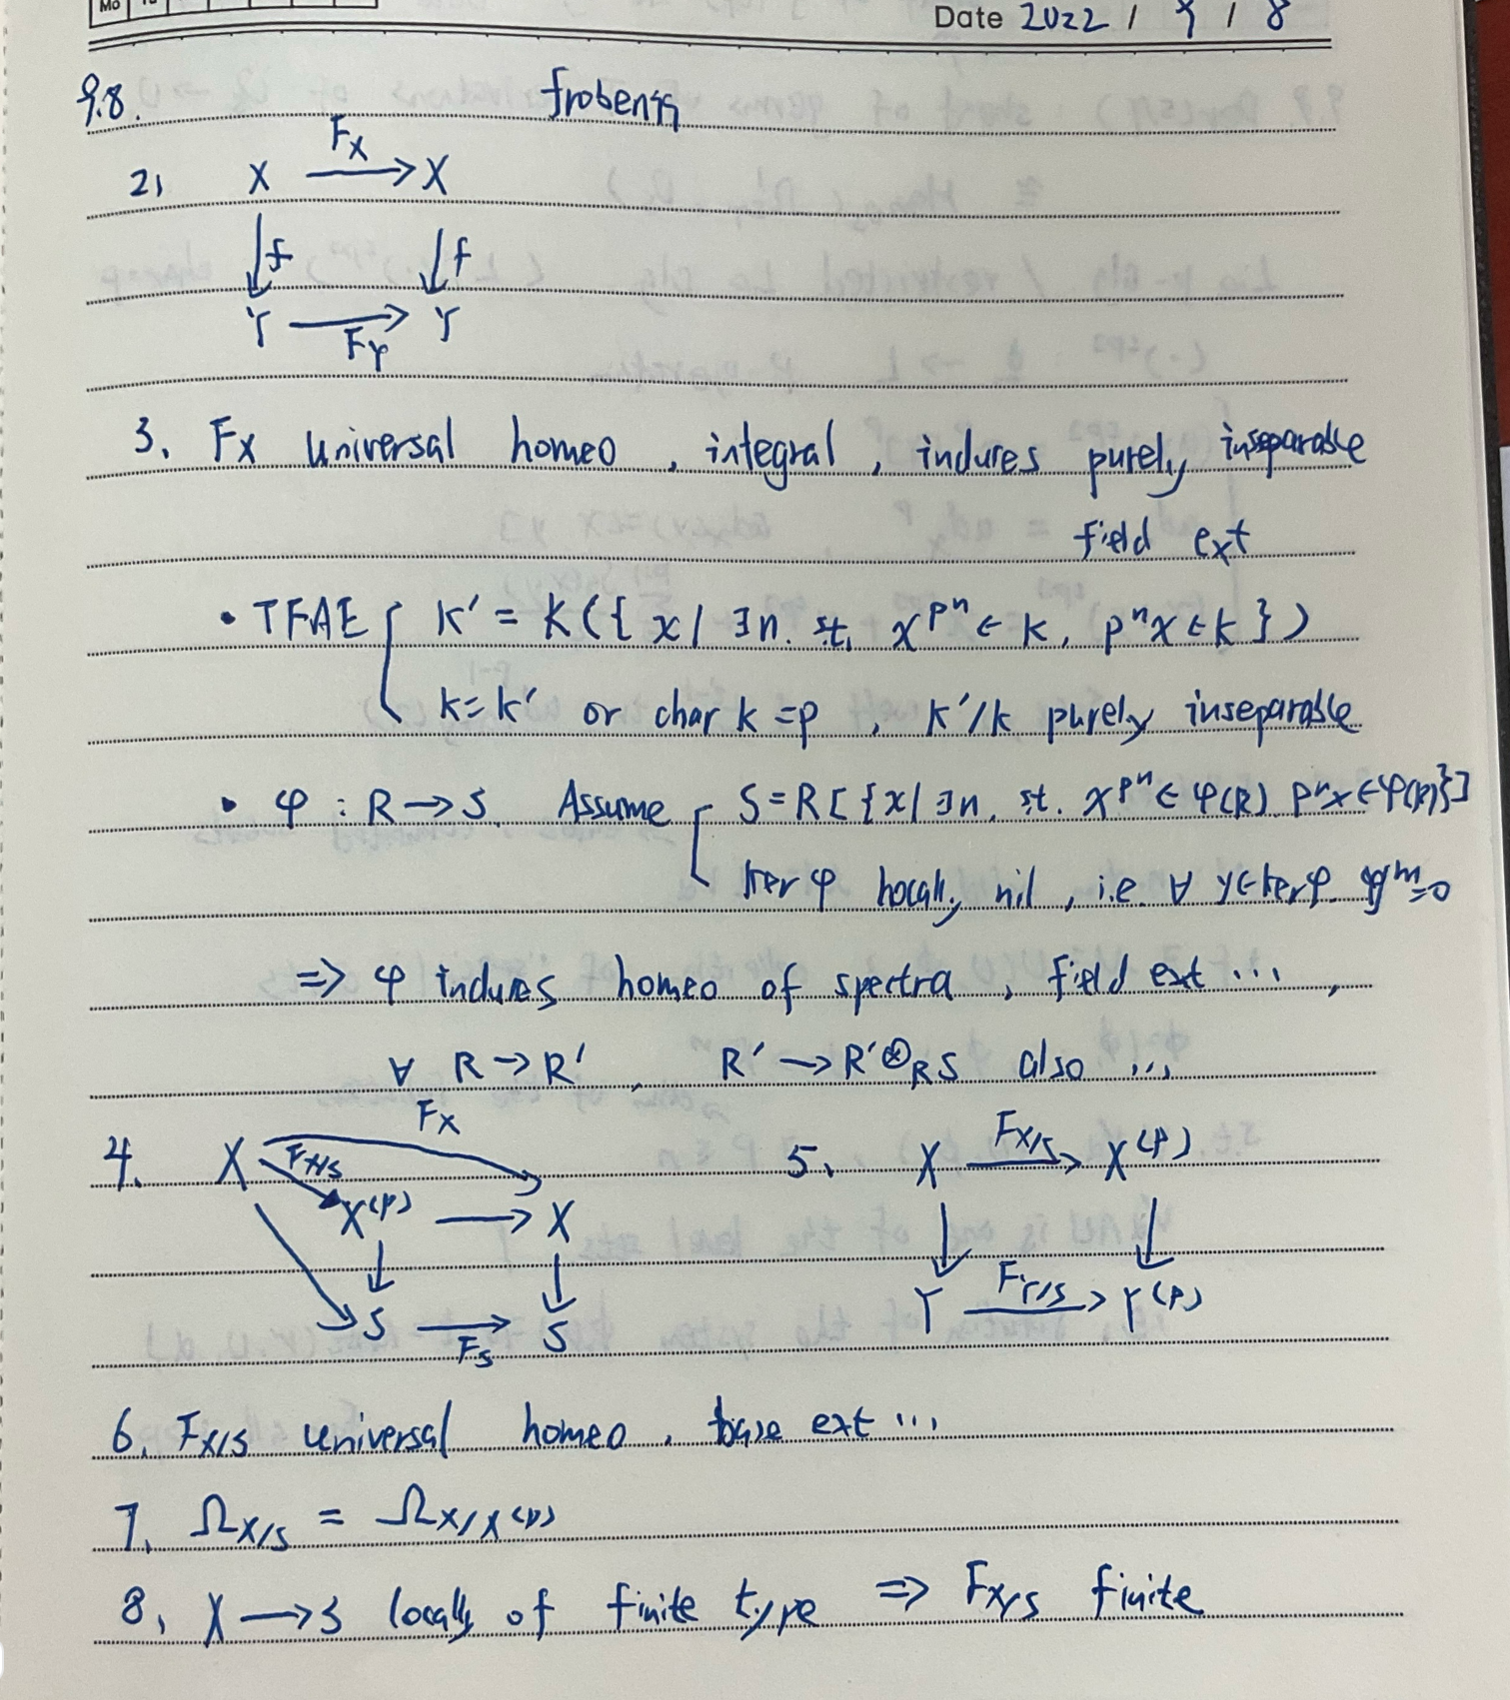 Mo
Date 2022 / 9 / 8
9.8.
Frobenius
2, X →(F_X) X
↓f ↓f
Y →(F_Y) Y
3. F_X universal homeo, integral, induces purely inseparable
field ext
• TFAE { K' = K({x | ∃n. st. x^{p^n} ∈ k, p^n x ∈ k})
k = k' or char k = p, K'/k purely inseparable
• φ : R → S. Assume { S = R[{x | ∃n, st. x^{p^n} ∈ φ(R) p^n x ∈ φ(R)}]
ker φ locally nil, i.e. ∀ y ∈ ker φ. y^m = 0
⇒ φ induces homeo of spectra, field ext ...,
∀ R → R', R' → R' ⊗_R S also ...
4. X F_X
F_{X/S}
X^{(p)} → X
↓ ↓
S →(F_S) S
5. X →(F_{X/S}) X^{(p)}
↓ ↓
Y →(F_{Y/S}) Y^{(p)}
6. F_{X/S} universal homeo, base ext ...
7. Ω_{X/S} = Ω_{X/X^{(p)}}
8, X → S locally of finite type ⇒ F_{X/S} finite